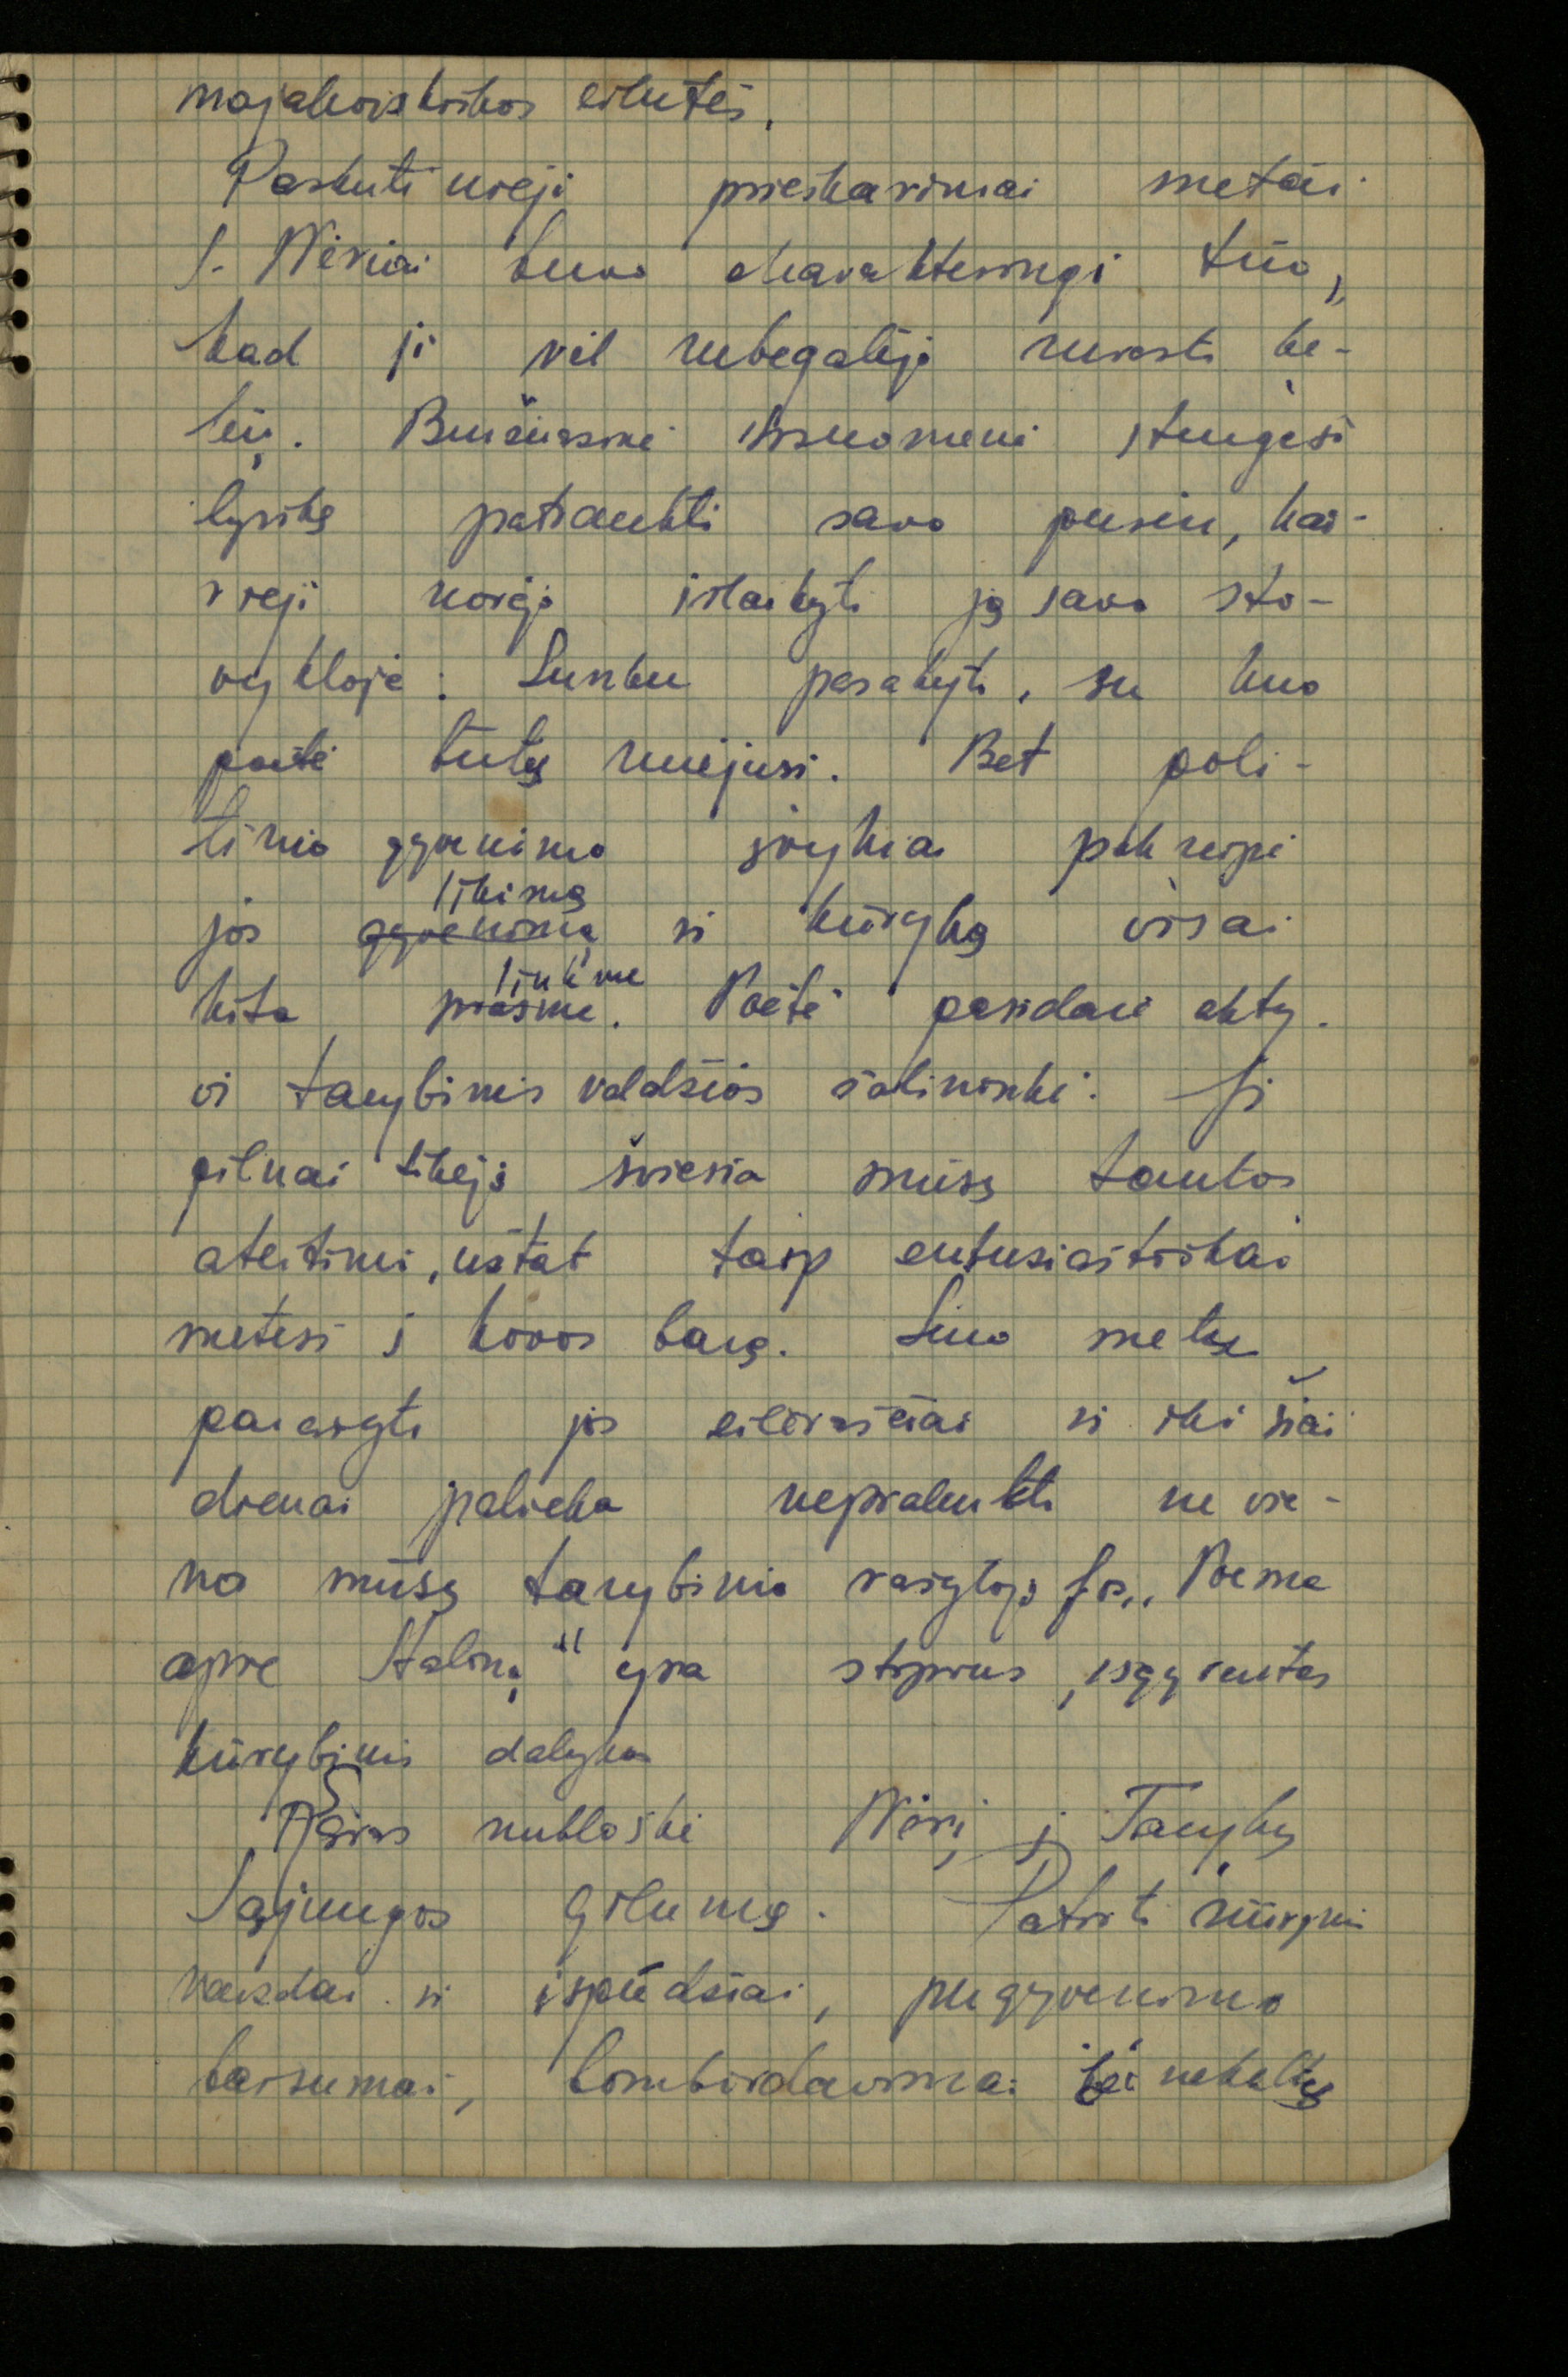 majakoviskos eilutės.
Paskutinieji prieškariniai metai
S. Nėriai buvo charakteringi tuo,
kad ji vėl nebegalėjo surasti ke-
lių. Buržuaziniai visuomeni stengėsi
lyrikę patraukti savo pusėn, kai-
rieji norėjo išlaikyti ją savo sto-
vykloje. Sunku pasakyti, su kuo
poetė būtų nuėjusi. Bet poli-
tinio gyvenimo įvykiai pakreipė
likimą
jos gyvenimą ir kūrybą visai
linkme
kita prasme. Poetė pasidarė akty-
vi tarybinės valdžios šalininkė. Ji
giliai tikėjo šviesia mūsų tautos
ateitimi, užtat taip entuziastiškai
metėsi į kovos barą. Šiuo metu
parašyti jos eilėraščiai ir iki šiai
dienai palieka nepralenkti ne vie-
no mūsų tarybinio rašytojo. Jos „Poema
apie Staliną" yra stiprus, išgyventas
kūrybinis dalykas
Karas nubloškė Nėrį į Tarybų
Sąjungos gilumą. Patirti žiaurūs
vaizdai ir įspūdžiai, pergyvenimo
baisumai, bombardavimai bei nekaltų